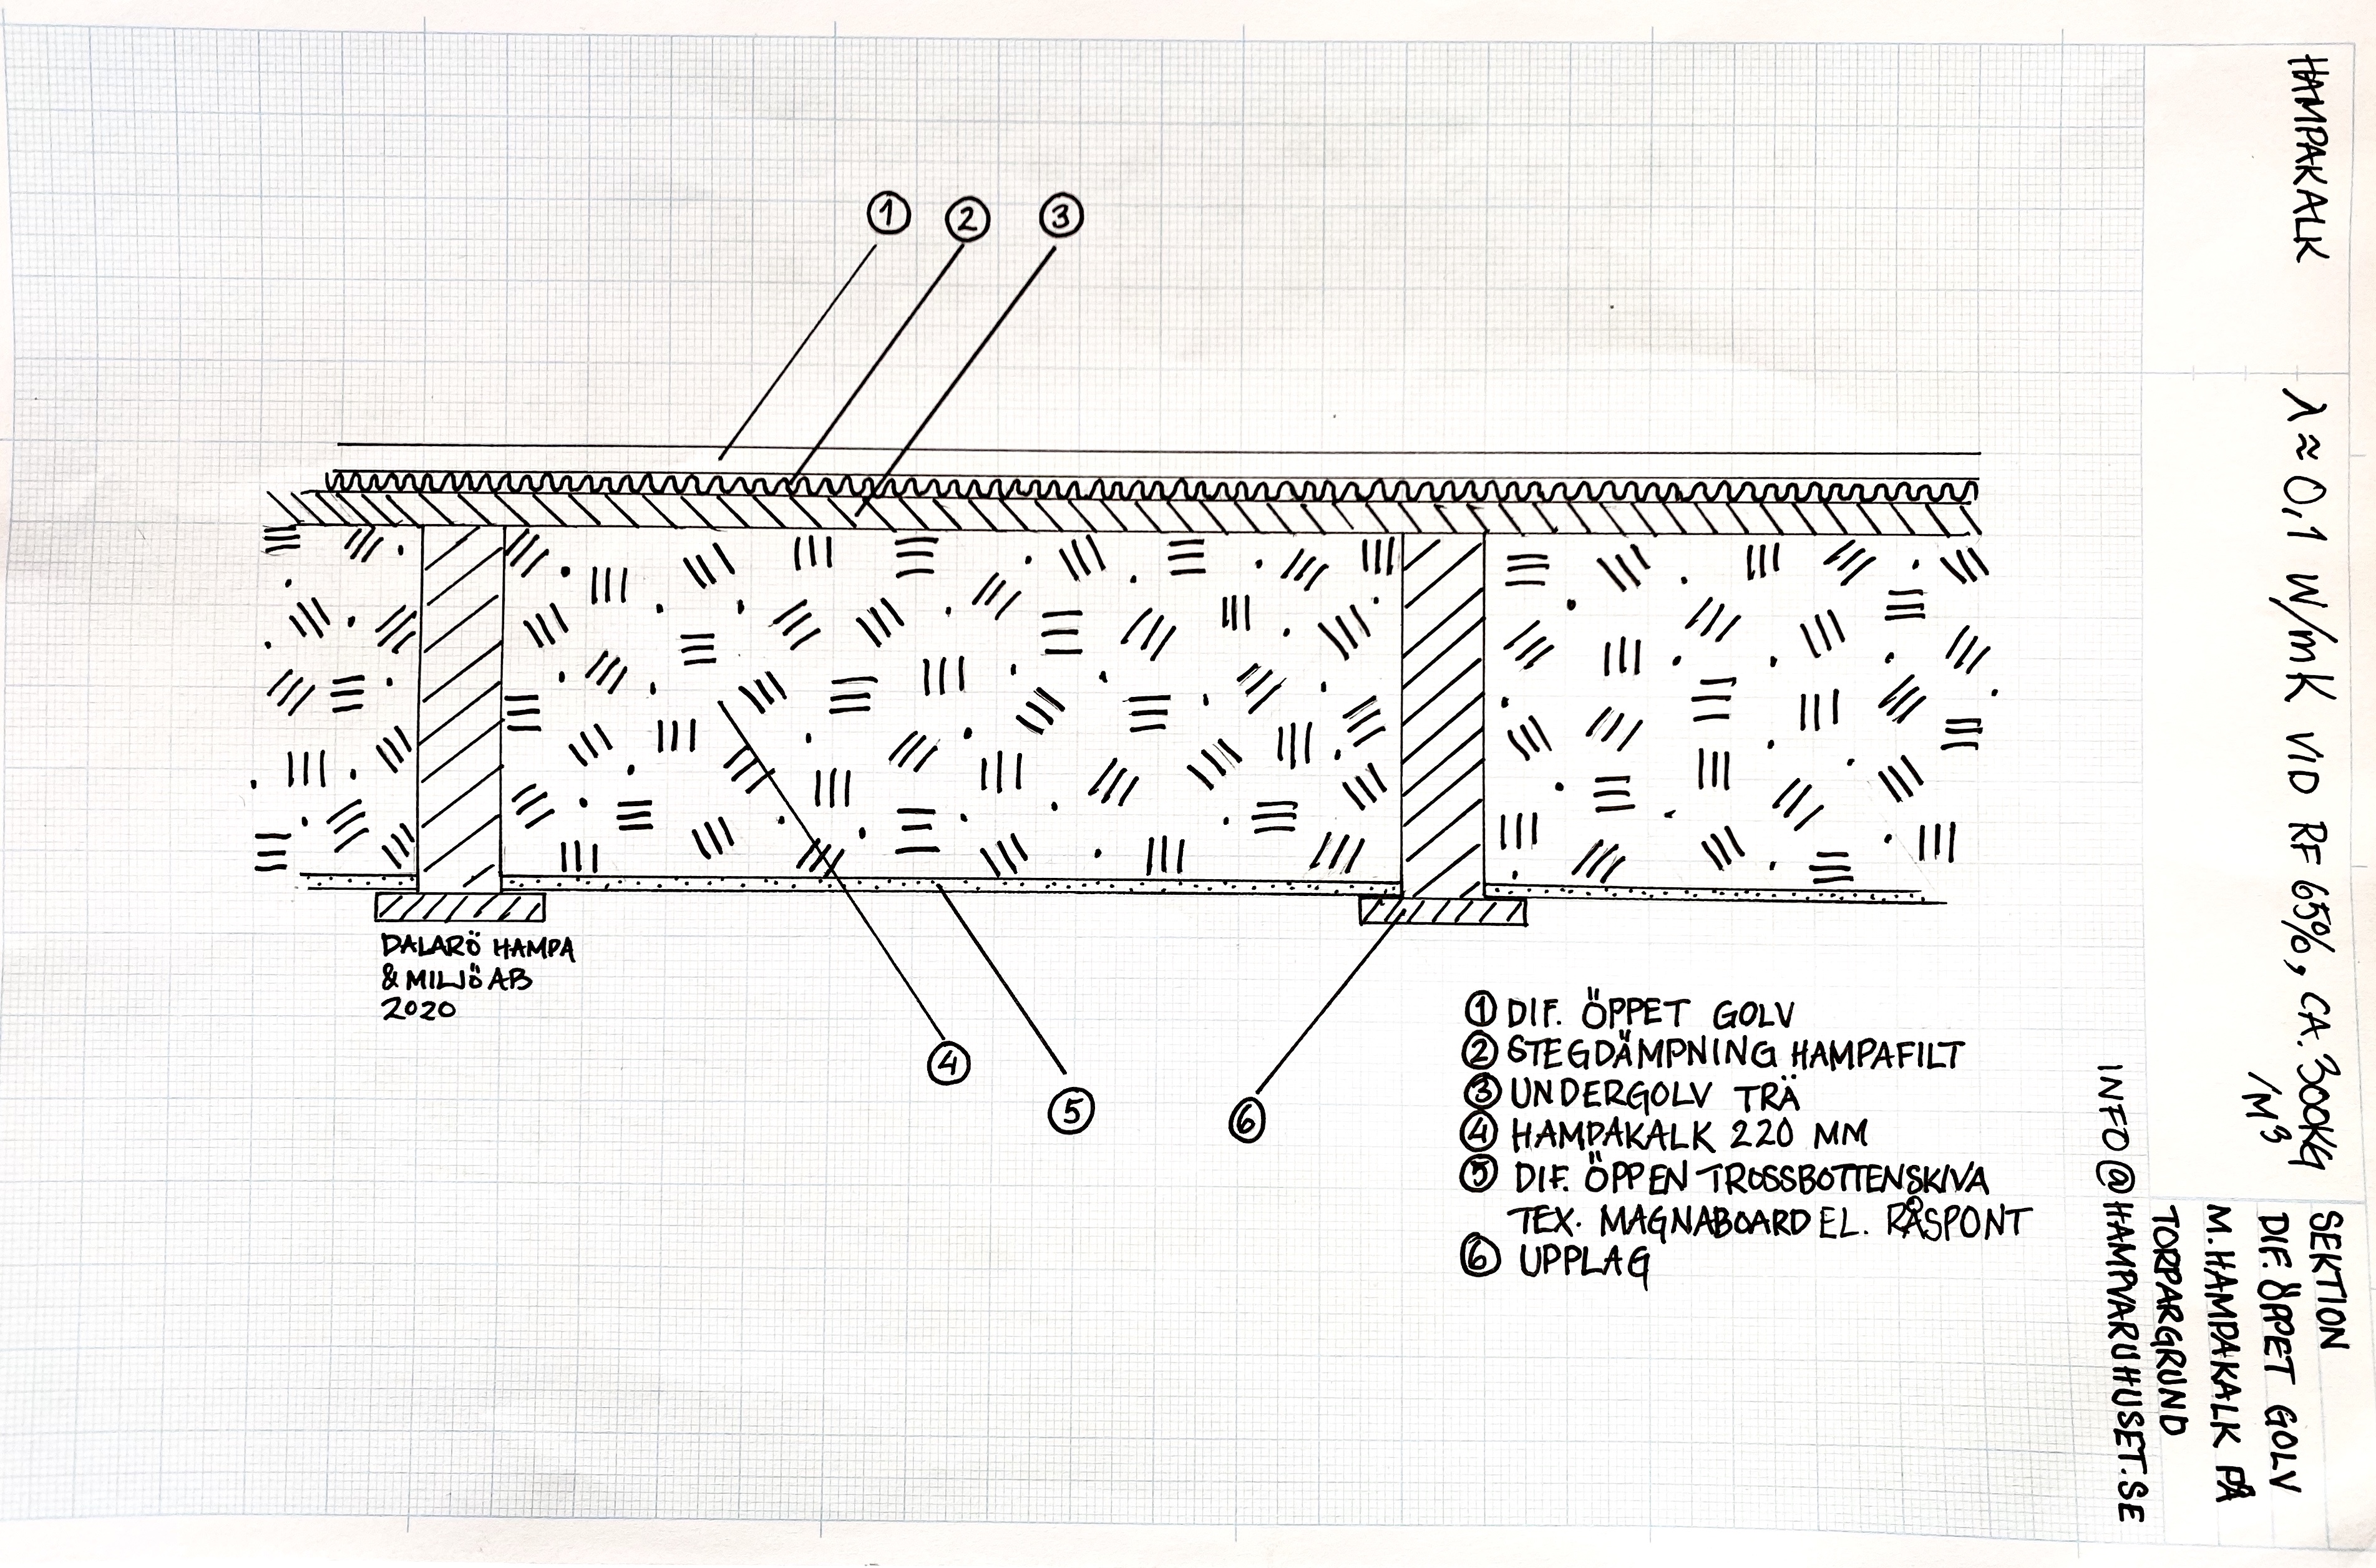 ① ② ③
DALARÖ HAMPA
& MILJÖ AB
2020
④
⑤
⑥
① DIF. ÖPPET GOLV
② STEGDÄMPNING HAMPAFILT
③ UNDERGOLV TRÄ
④ HAMPAKALK 220 MM
⑤ DIF. ÖPPEN TROSSBOTTENSKIVA
TEX. MAGNABOARD EL. RÅSPONT
⑥ UPPLAG
HAMPAKALK
λ ≈ 0,1 W/mK VID RF 65%, CA. 300KG
/M³
SEKTION
DIF. ÖPPET GOLV
M. HAMPAKALK PÅ
TORPARGRUND
INFO@HAMPVARUHUSET.SE